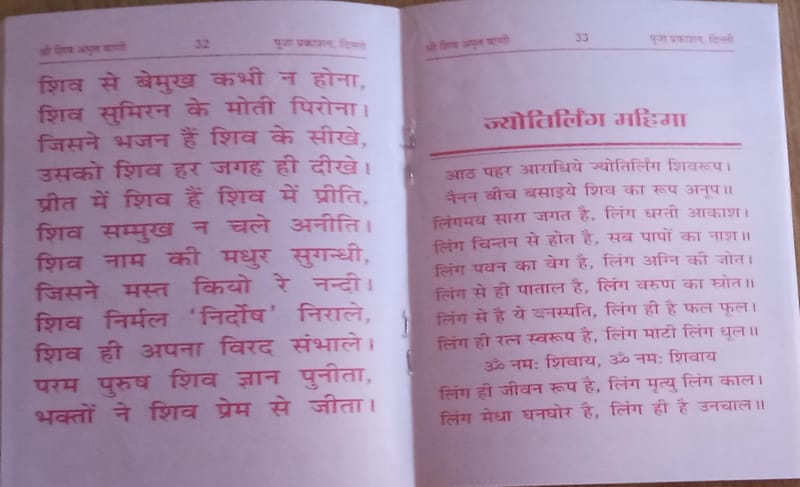 श्री शिव अमृत वाणी 32 पूजा प्रकाशन, दिल्ली
शिव से बेमुख कभी न होना,
शिव सुमिरन के मोती पिरोना।
जिसने भजन हैं शिव के सीखे,
उसको शिव हर जगह ही दीखे।
प्रीत में शिव हैं शिव में प्रीति,
शिव सम्मुख न चले अनीति।
शिव नाम की मधुर सुगन्धी,
जिसने मस्त कियो रे नन्दी।
शिव निर्मल ‘निर्दोष’ निराले,
शिव ही अपना विरद संभाले।
परम पुरुष शिव ज्ञान पुनीता,
भक्तों ने शिव प्रेम से जीता।
श्री शिव अमृत वाणी 33 पूजा प्रकाशन, दिल्ली
ज्योतिर्लिंग महिमा
आठ पहर आराधिये ज्योतिर्लिंग शिवरूप।
नैनन बीच बसाइये शिव का रूप अनूप॥
लिंगमय सारा जगत है, लिंग धरती आकाश।
लिंग चिन्तन से होत है, सब पापों का नाश॥
लिंग पवन का वेग है, लिंग अग्नि की जोत।
लिंग से ही पाताल है, लिंग वरुण का स्त्रोत॥
लिंग से है ये वनस्पति, लिंग ही है फल फूल।
लिंग ही रत्न स्वरूप है, लिंग माटी लिंग धूल॥
ॐ नमः शिवाय, ॐ नमः शिवाय
लिंग ही जीवन रूप है, लिंग मृत्यु लिंग काल।
लिंग मेधा घनघोर है, लिंग ही है उनचाल॥